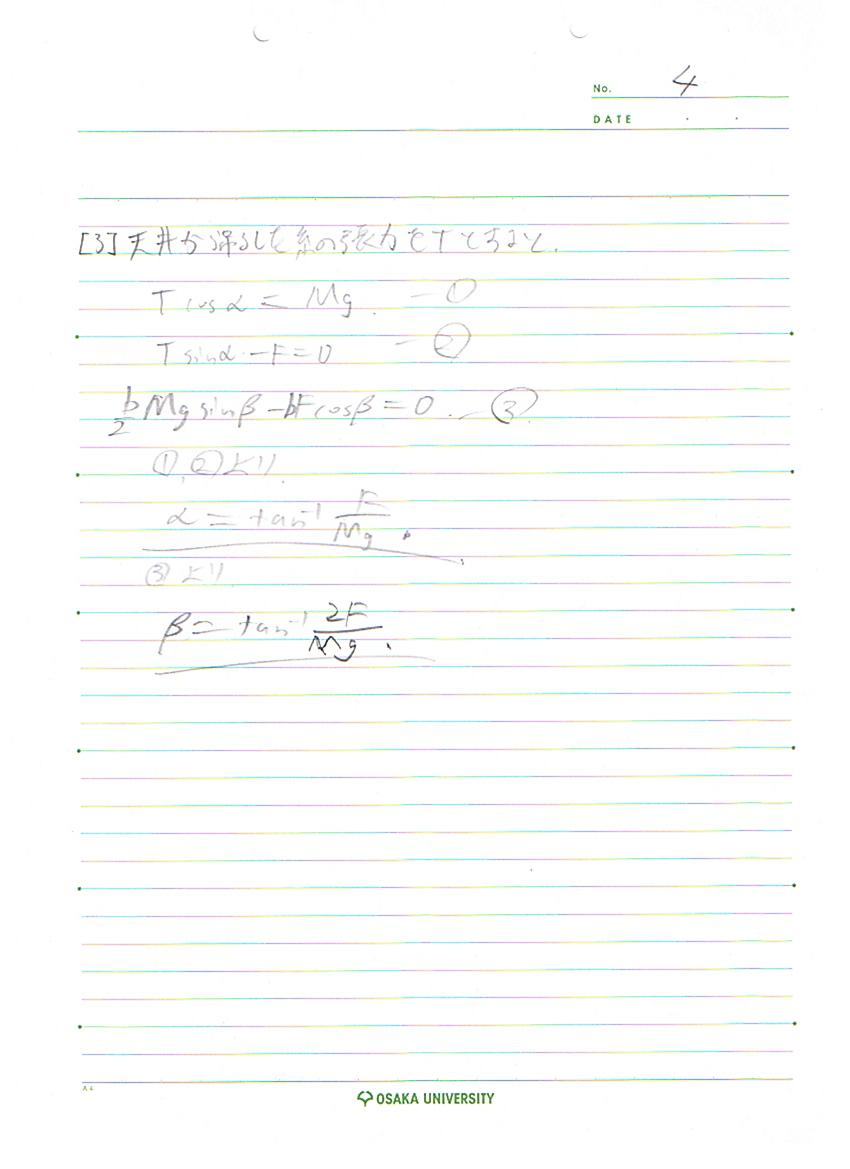 No. 4
DATE . .
[3] 天井から吊るした糸の張力をTとすると.
T cos α = Mg. ー①
T sin α - F = 0 ー②
b/2 Mg sin β - bF cos β = 0. ー③
①,②より
α = tan⁻¹ F/Mg.
③より
β = tan⁻¹ 2F/Mg.
A4
OSAKA UNIVERSITY